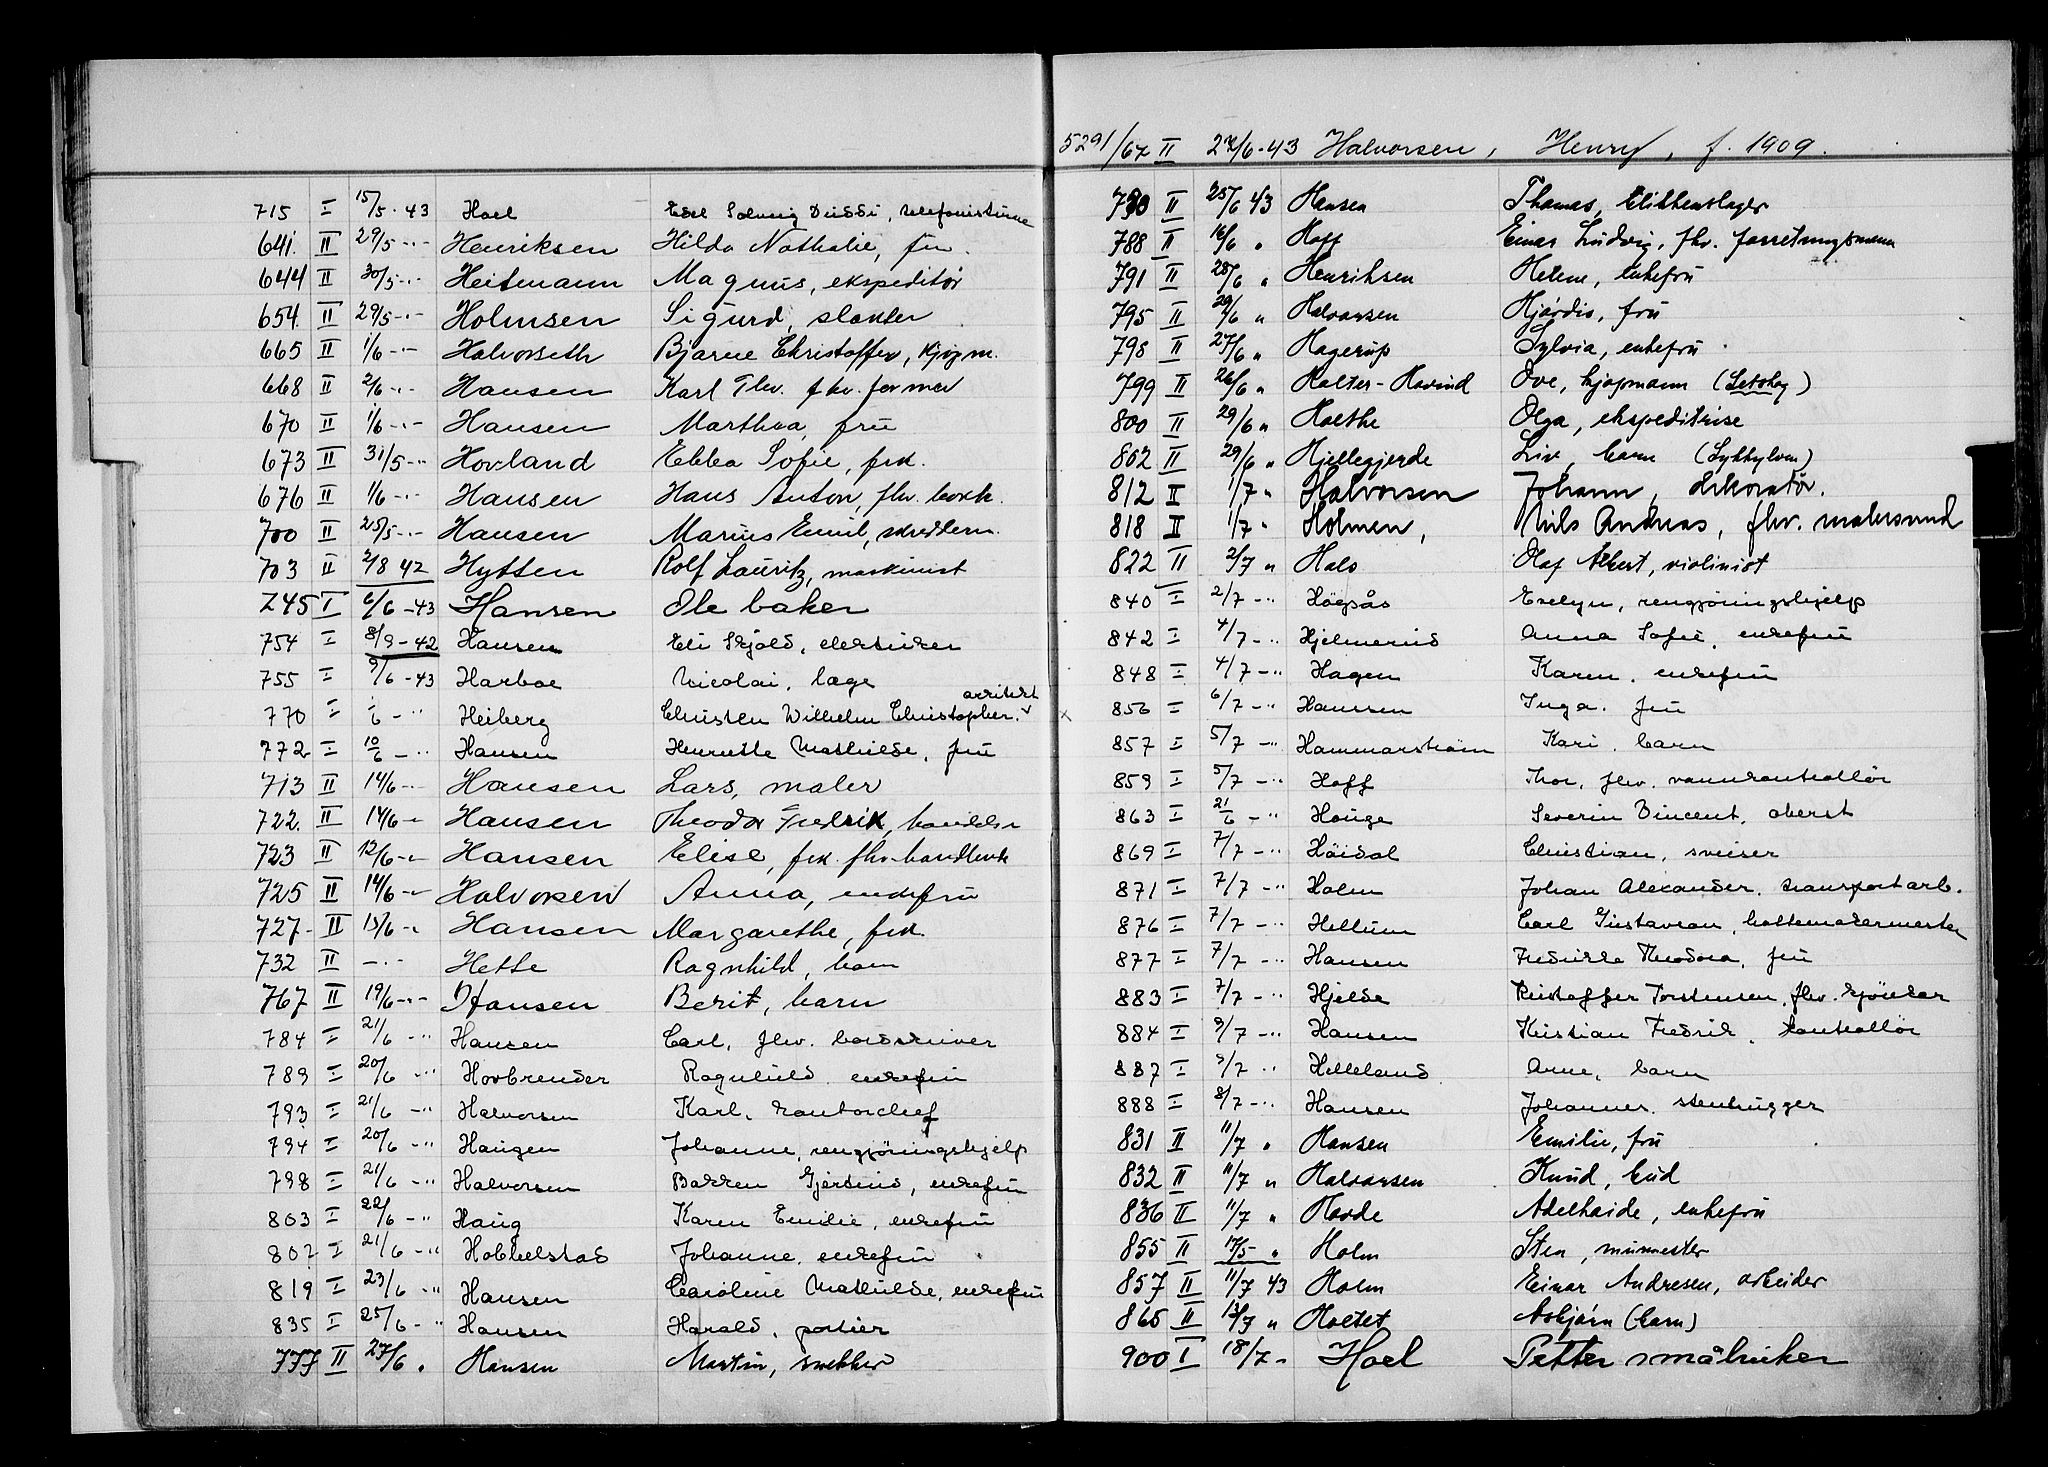 715 I 15/5 · 43 Hoel Edel Solveig Deissi, telefonistinne
641. II 29/5 -·- Henriksen Hilda Nathalie, fru.
644 II 30/5 -·- Heitmann Magnus, ekspeditør
654. II 29/5 -·- Holmsen Sigurd, slakter
665 II 1/6 -·- Halvorseth Bjarne Christoffer, kjøpm.
668 II 2/6 -·- Hansen Karl Thv. fhv. former
670 II 1/6 -·- Hansen Marthea, fru
673 II 31/5 -·- Hovland Ebba Sofie, frk.
676 II 1/6 -·- Hansen Hans Anton, fhv.
700 II 25/5 -·- Hansen Marius Emil, skreddern.
703 II 2/8 42 Hytten Rolf Lauritz, maskinist
745 I 6/6 -43 Hansen Ole baker
754 I 8/9 -42 Hansen Eli Skjold, elektriker
755 I 9/6 -43 Harboe Nicolai, læge
770 I -/6 -·· Heiberg Christen Wilhelm Christopher. arkitekt
772 I 10/6 -·· Hansen Henriette Mathilde, fru
713 II 14/6 -·- Hansen Lars, maler
722. II 14/6 -·- Hansen Theodor Fredrik,
723 II 12/6 -·- Hansen Elise, frk. fhv.
725 II 14/6 -·- Halvorsen Anna, enkefru
727- II 15/6 -·- Hansen Margarethe, frk.
732 II -·- Hette Ragnhild, barn
767 II 19/6 -·- Hansen Berit, barn
784 I 21/6 -·· Hansen Carl, fhv.
789 I 20/6 -·· Hovbrender Ragnhild enkefru
793 I 21/6 -·· Halvorsen Karl, kontorchef
794 I 20/6 -·· Haugen Johanne, rengjøringshjelp
798 I 21/6 -·· Halvorsen Bakken Gjertine, enkefru
803 I 22/6 -·· Haug Karen Emilie, enkefru
807 I 21/6 -·· Hobbelstad Johanne, enkefru
819 I 23/6 -·· Hansen Caroline Mathilde, enkefru
835 I 25/6 -·· Hansen Harald, portier
777 II 27/6 „ Hansen Martin, snekker
5291/67 II 27/6-43 Halvorsen, Henry, f. 1909.
790 II 25/6 43 Hansen Thomas, blikkenslager
788 II 16/6 „ Hoff Einar Ludvig, fhv. forretningsmann
791 II 28/6 „ Henriksen Helene, enkefru
795 II 29/6 „ Halvorsen Hjørdis, fru
798 II 27/6 „ Hagerup Sylvia, enkefru
799 II 26/6 „ Holter-Hovind Ove, kjøpmann (Setskog)
800 II 29/6 „ Holthe Olga, ekspeditrise
802 II 29/6 „ Hjellegjerde Liv, barn (Sykkylven)
812 II 1/7 „ Halvorsen Johann, dekoratør.
818 II 1/7 „ Holmen, Nils Andreas, fhv. malersvend
822 II 2/7 „ Hals Olaf Albert, violinist
840 I 2/7 -·· Högsås Evelyn, rengjøringshjelp
842 I 4/7 -·· Hjelmerud Anna Sofie, enkefru
848 I 4/7 -·· Hagen Karen, enkefru
× 856 I 6/7 -·· Hanssen Inga. fru
857 I 5/7 -·· Hammarström Kari, barn
859 I 5/7 -·· Hoff Thor, fhv. vannkontrollør
863 I 21/6 -·· Houge Severin Vincent, oberst
869 I 7/7 -·· Höidal Christian, sveiser
871 I 7/7 -·· Holm Johan Alexander, transportarb.
876 I 7/7 -·· Hellum Carl Gustavson, hattemakermester
877 I 7/7 -·· Hansen Fredrikke Theodora, fru
883 I 7/7 -·· Hjelde Kristoffer Torstensen, fhv.
884 I 9/7 -·· Hansen Kristian Fredrik, kontrollør
887 I 9/7 -·· Helleland Arne, barn
888 I 8/7 -·· Hansen Johannes. stenhugger
831 II 11/7 „ Hansen Emilie, fru
832 II 11/7 „ Halvorsen Knud, bud
836 II 11/7 „ Hovde Adelhaide, enkefru
855 II 17/5 „ Holm Sten, murmester
857 II 11/7 43 Holm Einar Andresen, arbeider
865 II 13/7 „ Holtet Asbjørn (barn)
900 I 18/7 - Hoel Petter småbruker